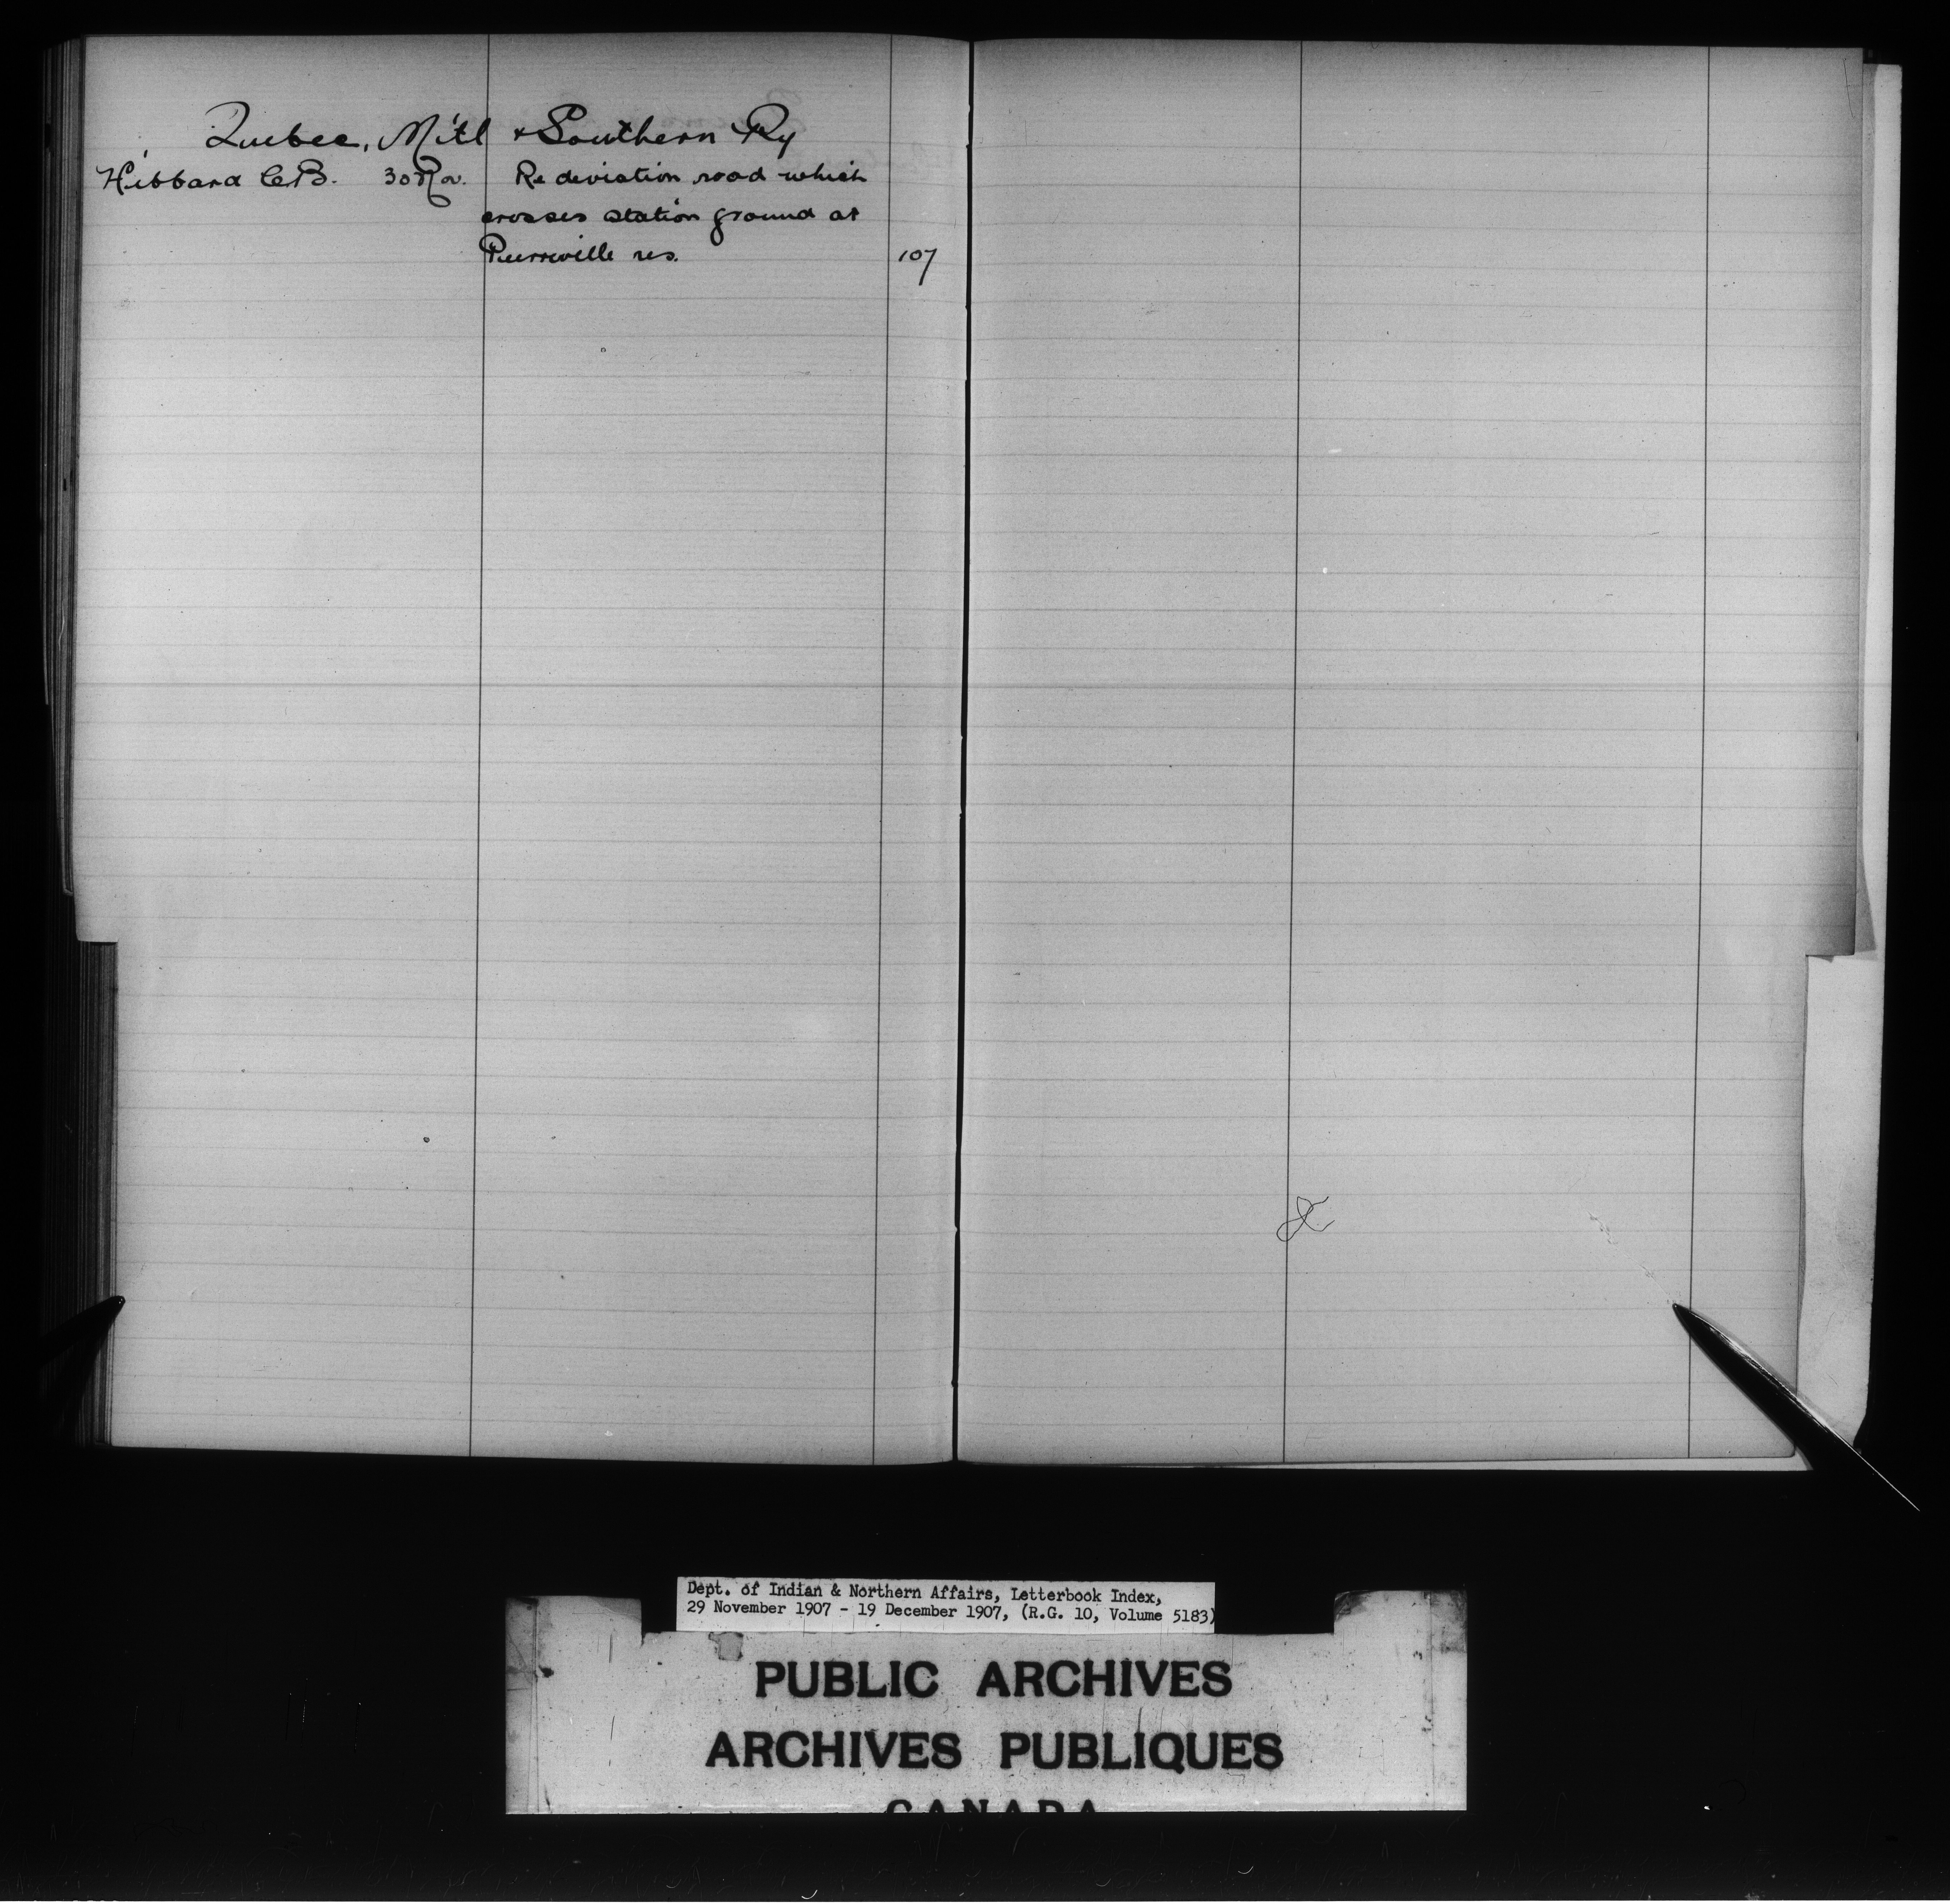 Quebec, Mtl & Southern Ry
Hibbard C.B. 30 Nov. Re deviation road which
crosses station ground at
Pierreville res. 107
Dept. of Indian & Northern Affairs, Letterbook Index,
29 November 1907 - 19 December 1907, (R.G. 10, Volume 5183)
PUBLIC ARCHIVES
ARCHIVES PUBLIQUES
CANADA